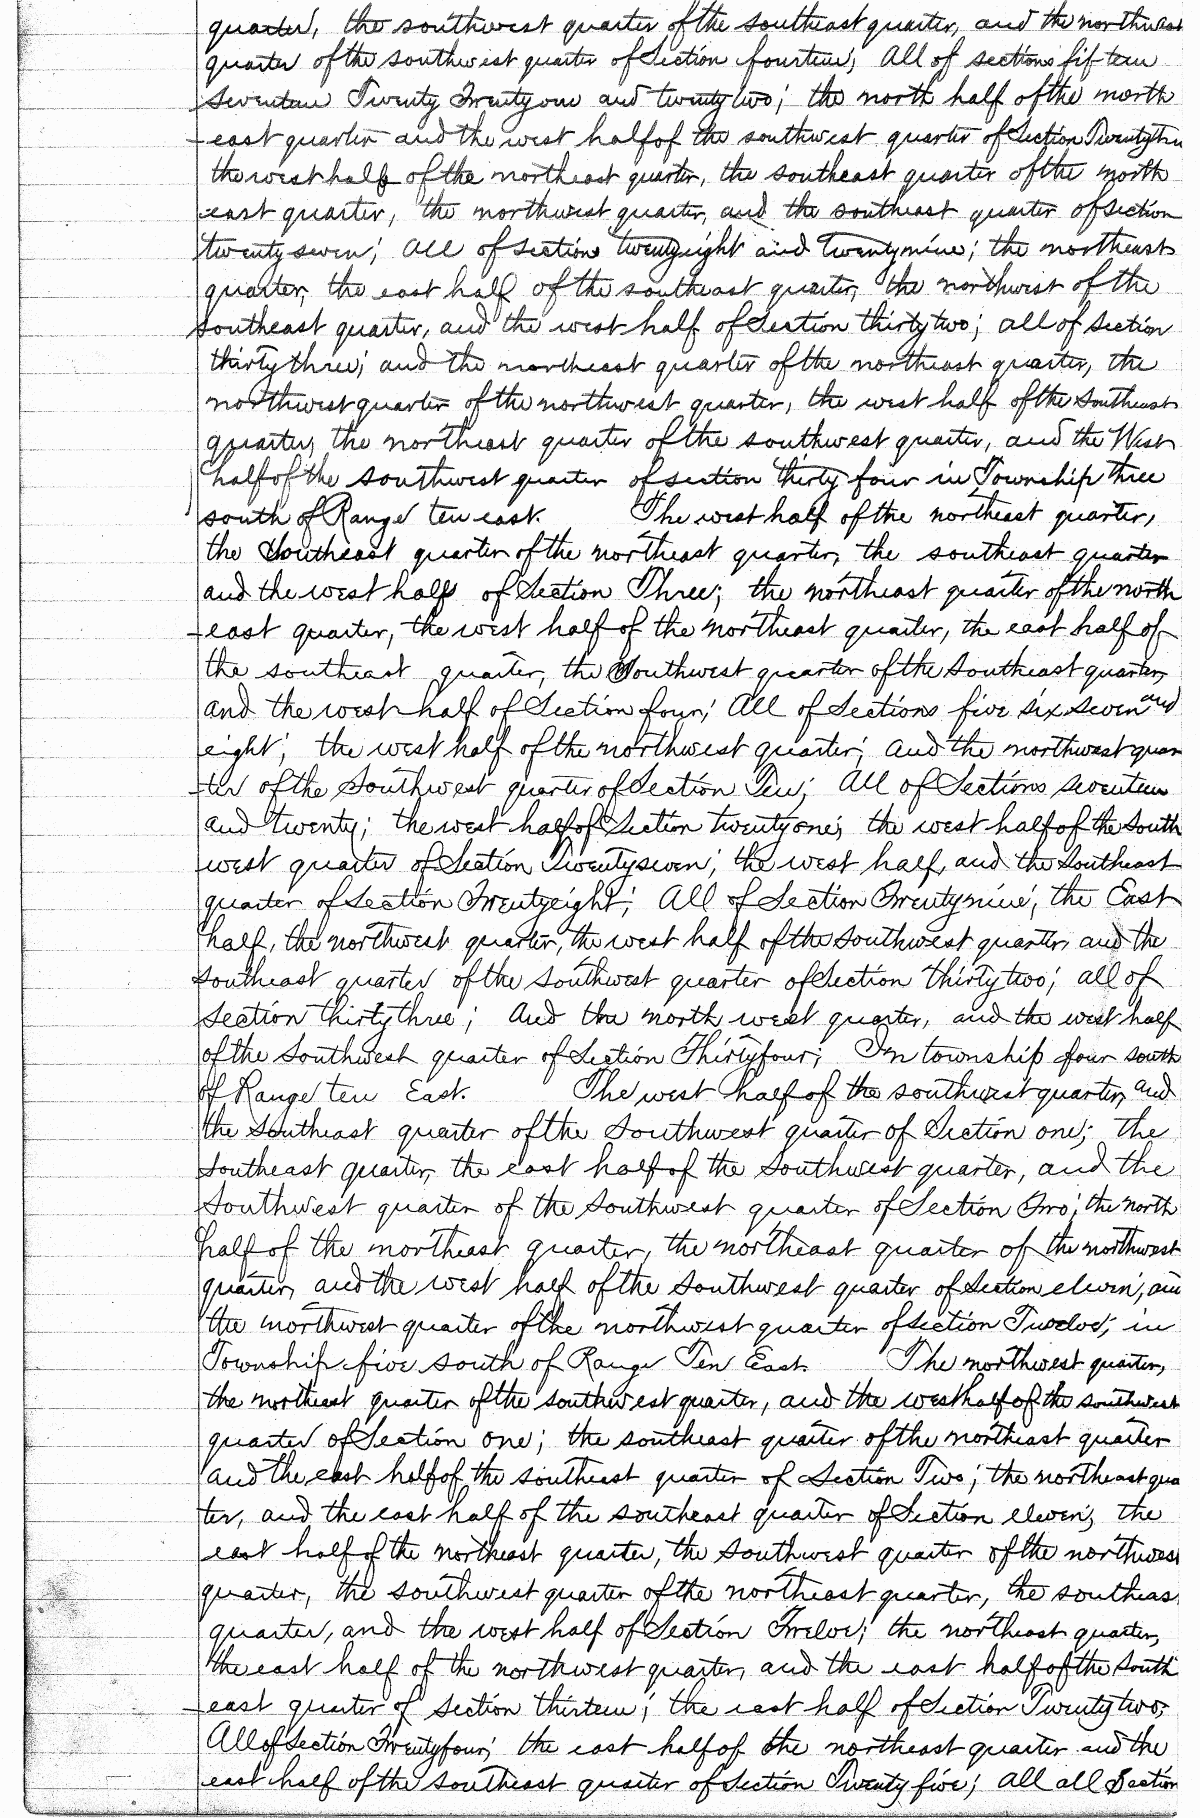 quarter, the southwest quarter of the southeast quarter, and the northwest
quarter of the southwest quarter of Section fourteen; All of sections fifteen
seventeen Twenty Twentyone and twentytwo; the north half of the north
east quarter and the west half of the southwest quarter of Section
the west half of the northeast quarter, the southeast quarter of the north
east quarter, the northwest quarter, and the southeast quarter of Section
twentyseven; All of Sections twentyeight and Twentynine; the northeast
quarter, the east half of the southeast quarter, the northwest of the
southeast quarter, and the west half of Section thirtytwo; all of Section
thirtythree; and the northeast quarter of the northeast quarter, the
northwest quarter of the northwest quarter, the west half of the southeast
quarter, the northeast quarter of the southwest quarter, and the West
half of the southwest quarter of section thirty four in Township three
south of Range ten east. The west half of the northeast quarter,
the Southeast quarter of the northeast quarter, the southeast quarter
and the west half of Section Three; the northeast quarter of the north
east quarter, the west half of the northeast quarter, the east half of
the southeast quarter, the Southwest quarter of the Southeast quarter,
and the west half of Section four; All of Sections five six seven and
eight; the west half of the northwest quarter; and the northwest quar
ter of the Southwest quarter of Section Ten; All of Sections seventeen
and twenty; the west half of Section twentyone; the west half of the South
west quarter of Section Twentyseven; the west half, and the Southeast
quarter of Section Twentyeight; All of Section Twentynine; the East
half, the northwest quarter, the west half of the Southwest quarter, and the
southeast quarter of the southwest quarter of Section thirtytwo; all of
Section thirtythree; And the north west quarter, and the west half
of the Southwest quarter of Section Thirtyfour; In township four south
of Range ten East. The west half of the southwest quarter, and
the Southeast quarter of the Southwest quarter of Section one; the
Southeast quarter, the east half of the Southwest quarter, and the
Southwest quarter of the Southwest quarter of Section Two; the north
half of the northeast quarter, the northeast quarter of the northwest
quarter, and the west half of the Southwest quarter of Section eleven; and
the northwest quarter of the northwest quarter of Section Twelve; in
Township five south of Range Ten East. The northwest quarter,
the northeast quarter of the southwest quarter, and the west half of the southwest
quarter of Section one; the southeast quarter of the northeast quarter
and the east half of the southeast quarter of Section Two; the northeast qua
ter, and the east half of the southeast quarter of Section eleven; the
east half of the northeast quarter, the Southwest quarter of the northwest
quarter, the southwest quarter of the northeast quarter, the southeas
quarter, and the west half of Section Twelve; the northeast quarter,
the east half of the northwest quarter, and the east half of the South
east quarter of section thirteen; the east half of Section Twentytwo;
All of Section Twentyfour; the east half of the northeast quarter and the
east half of the Southeast quarter of Section Twenty five; all all Section